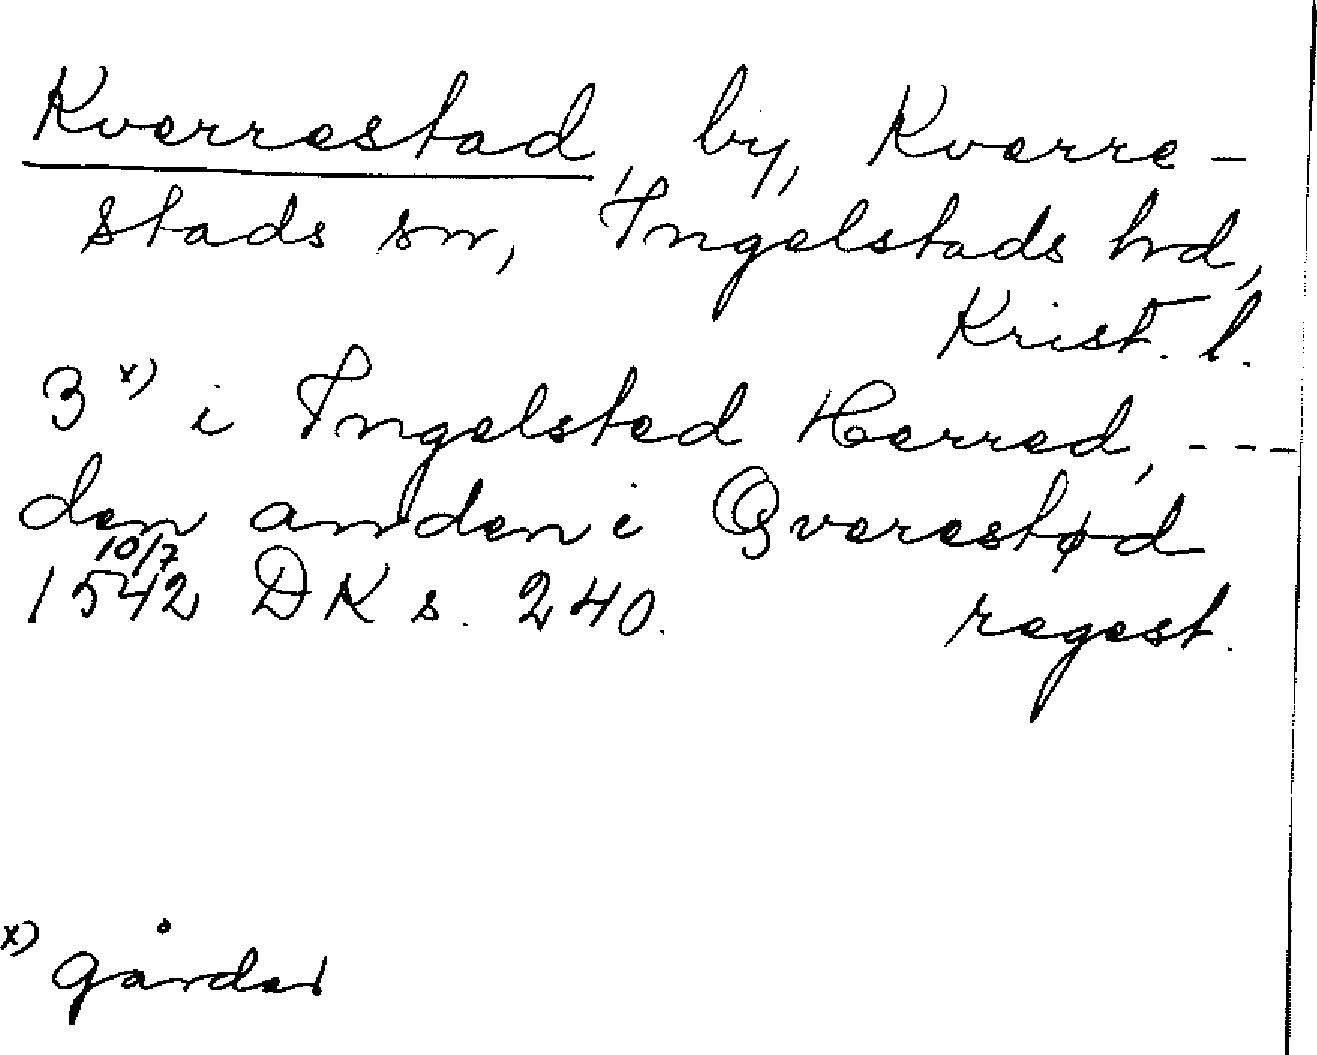 Kverrestad, by, Kverre-
stads sn, Ingelstads hd,
Krist. l.
3 x) i Ingelsted Herred, ---
den anden i Qverestød
10/7
1542 DK s. 240. regest.
x) gårdar